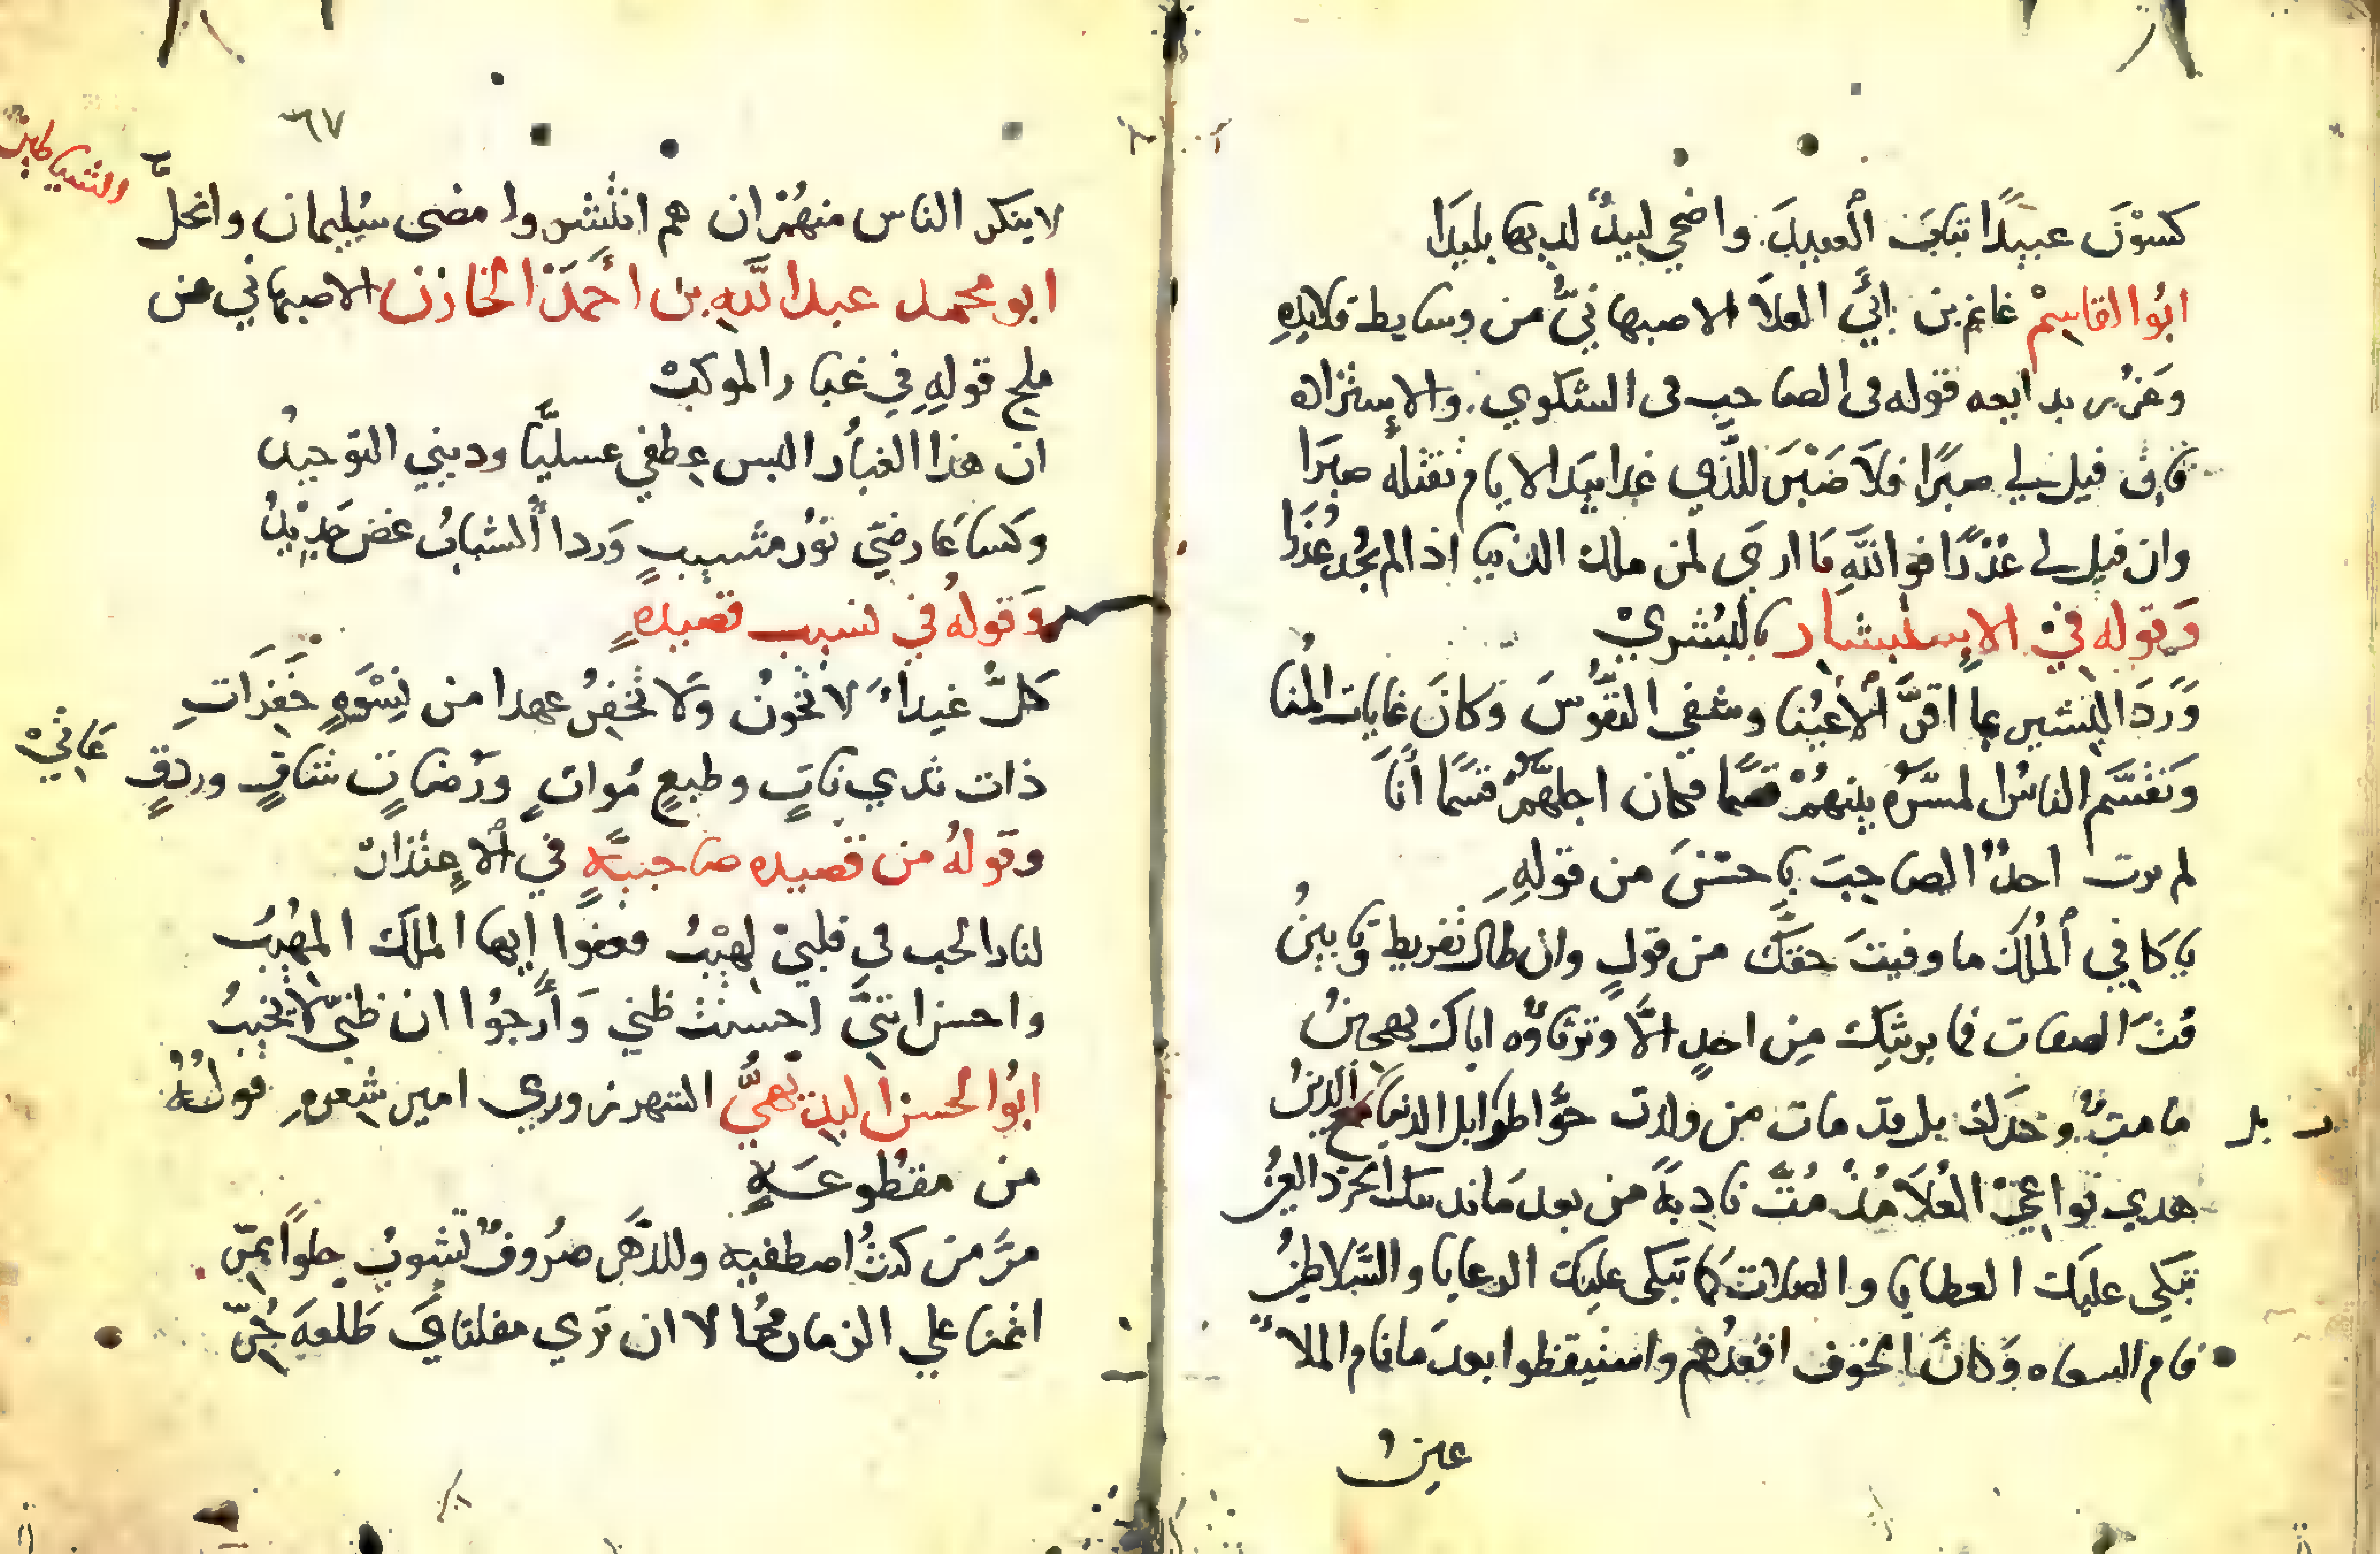 كسوْنَ عبيدًا ثيابَ العبيدِ واضحي لبيدٌ لديها بليدَا
ابُوا القاسِمْ غانم بن ابيَّ العلاَ الاصبهانيُّ من وسايط قلايدهِ
وغرر بدايعه قوله فى الصاحب فى الشكوي والاِستزاده
فان قيل لي صبرًا فلاَ صَبْرَ للذَّي غدا بيَد الايام تقتله صبرَا
وان قيل لي عُذرًا فوالله مَا ارى لمن ملك الدنيا اذا لم يجُد عُذرَا
وَقوله فيْ الاِستبشار بالبُشريْ
وَرَدَ البشير بما اقرَّ الأعيُنا وشفي النفُوسَ وَكانَ غايات المُنا
وَتقسَّم الناسُ المسَّرة بينهُمْ قسمًا فكان اجلهَّمْ قسمًا أنَا
لم يرث احدٌ الصاحِبَ باحسَنَ من قولِهِ
يا كافي المُلك ما وفيتَ حقكَّ من قولٍ وان طال تقريط وتابينُ
فُتَّ الصفات فما يرثيك مِن احدٍ الاَّ وتزيينُه اياك تهجينُ
ما متَّ وحدَك بل قد مات من ولدت حوَّا طرا بل الدنيا مع الدينُ
هذي نواعيْ العُلاَ مُذْ مُتَّ نادِبةً من بعد مَا ندبتك الخرّد العينُ
تبكي عليَك العطايا والصلات كما تبكى عليَك الرعايا والسَّلاطينُ
قام السعاه وَكانَ الخوف اقعَدُهم واستيقظوا بعدَ ما نام الملا
عينُ
٦٧
لا ينكر الناس منهُمْ ان هم انتشروا مضى سُليمان وانحلَّ
الشياطين
ابو محمد عبد الله بن احمَدَ الخازن الاصبهاني من
ملح قولِهِ في غبار الموكبْ
ان هذا الغبارُ البس عِطفي عسليَّا وديني التوحيدُ
وكسا عَارضيّ نورُ مشيبٍ وَردا الشبابُ غض جَديدُ
وَقولهُ في نسيب قصيدهٍ
كلُّ غيداءَ لا تخونُ وَلا تخفِرُ عهدا من نِسْوَهٍ خَفِرَاتِ
ذات ثدي نَاتٍ وطبعٍ مُواتٍ وَرُضابٍ شافٍ وردفٍ
عَاتيْ
وقولهُ من قصيده صاحبيَّهٍ في الاعِتذارْ
لنار الحب في قلبيْ لهيْبُ فعفوا اِيها الملك المهيبُ
واحسن انني احسنت ظني وَأرجُوا ان ظنيّ لا يخيبُ
ابُوا لحسن البديهيُّ الشهرزوري امير شعرهِ قولُهُ
من مقطوعــهٍ
مرَّ من كنتُ اصطفيه وللدَّهر صرُوفٌ تشوبُ حلوًا بمّرِ
اتمنا علي الزمان مُحالا ان ترَي مقلتايَ طَلعةَ حُرّ